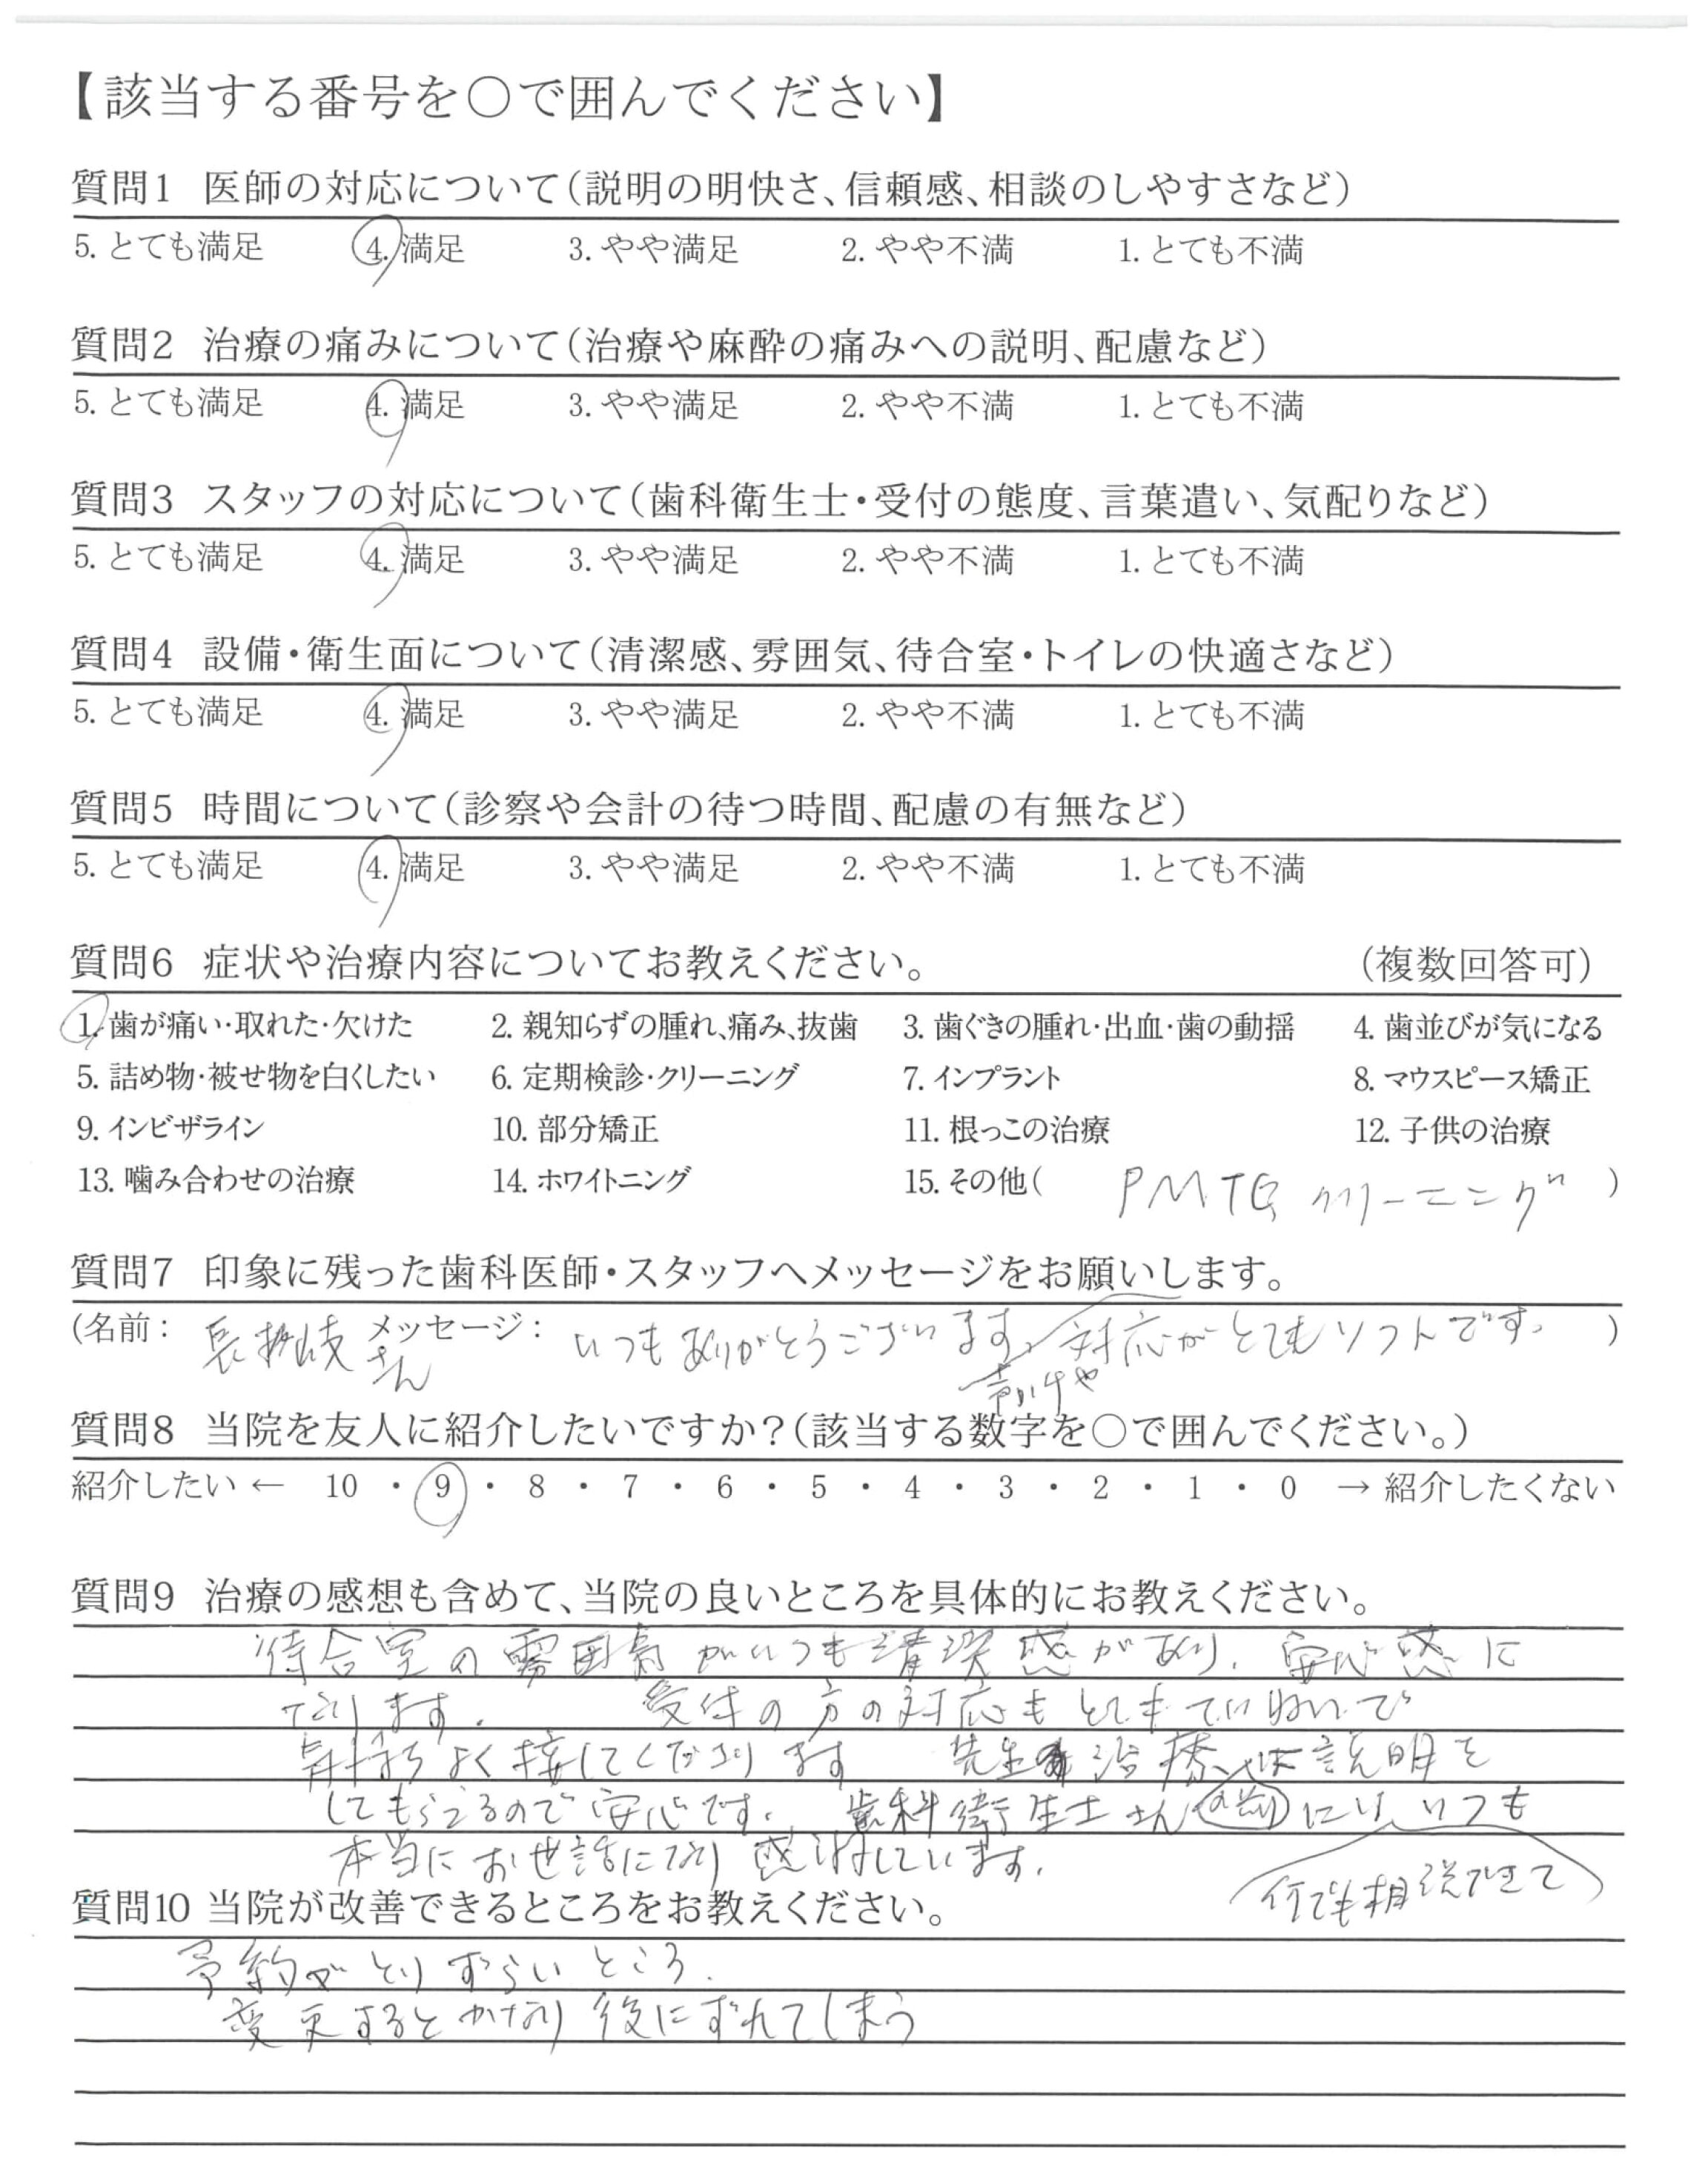 【該当する番号を〇で囲んでください】
質問1 医師の対応について(説明の明快さ、信頼感、相談のしやすさなど)
5. とても満足 4. 満足 3. やや満足 2. やや不満 1. とても不満
質問2 治療の痛みについて(治療や麻酔の痛みへの説明、配慮など)
5. とても満足 4. 満足 3. やや満足 2. やや不満 1. とても不満
質問3 スタッフの対応について(歯科衛生士・受付の態度、言葉遣い、気配りなど)
5. とても満足 4. 満足 3. やや満足 2. やや不満 1. とても不満
質問4 設備・衛生面について(清潔感、雰囲気、待合室・トイレの快適さなど)
5. とても満足 4. 満足 3. やや満足 2. やや不満 1. とても不満
質問5 時間について(診察や会計の待つ時間、配慮の有無など)
5. とても満足 4. 満足 3. やや満足 2. やや不満 1. とても不満
質問6 症状や治療内容についてお教えください。 (複数回答可)
1. 歯が痛い・取れた・欠けた 2. 親知らずの腫れ、痛み、抜歯 3. 歯ぐきの腫れ・出血・歯の動揺 4. 歯並びが気になる
5. 詰め物・被せ物を白くしたい 6. 定期検診・クリーニング 7. インプラント 8. マウスピース矯正
9. インビザライン 10. 部分矯正 11. 根っこの治療 12. 子供の治療
13. 噛み合わせの治療 14. ホワイトニング 15. その他( PMTG クリーニング )
質問7 印象に残った歯科医師・スタッフへメッセージをお願いします。
(名前: さん メッセージ: いつもありがとうございます。声かけや対応がとてもソフトです。 )
質問8 当院を友人に紹介したいですか?(該当する数字を〇で囲んでください。)
紹介したい ← 10 ・ 9 ・ 8 ・ 7 ・ 6 ・ 5 ・ 4 ・ 3 ・ 2 ・ 1 ・ 0 → 紹介したくない
質問9 治療の感想も含めて、当院の良いところを具体的にお教えください。
待合室の雰囲気がいつも清潔感があり、安心感に
なります。 受付の方の対応もとてもていねいで
気持ちよく接してくださります 先生 治療 説明を
してもらえるので安心です。 歯科衛生士さん にはいつも
何でも相談できて
本当にお世話になり感謝しています。
質問10 当院が改善できるところをお教えください。
予約がとりずらいところ.
変更するとかなり後にずれてしまう